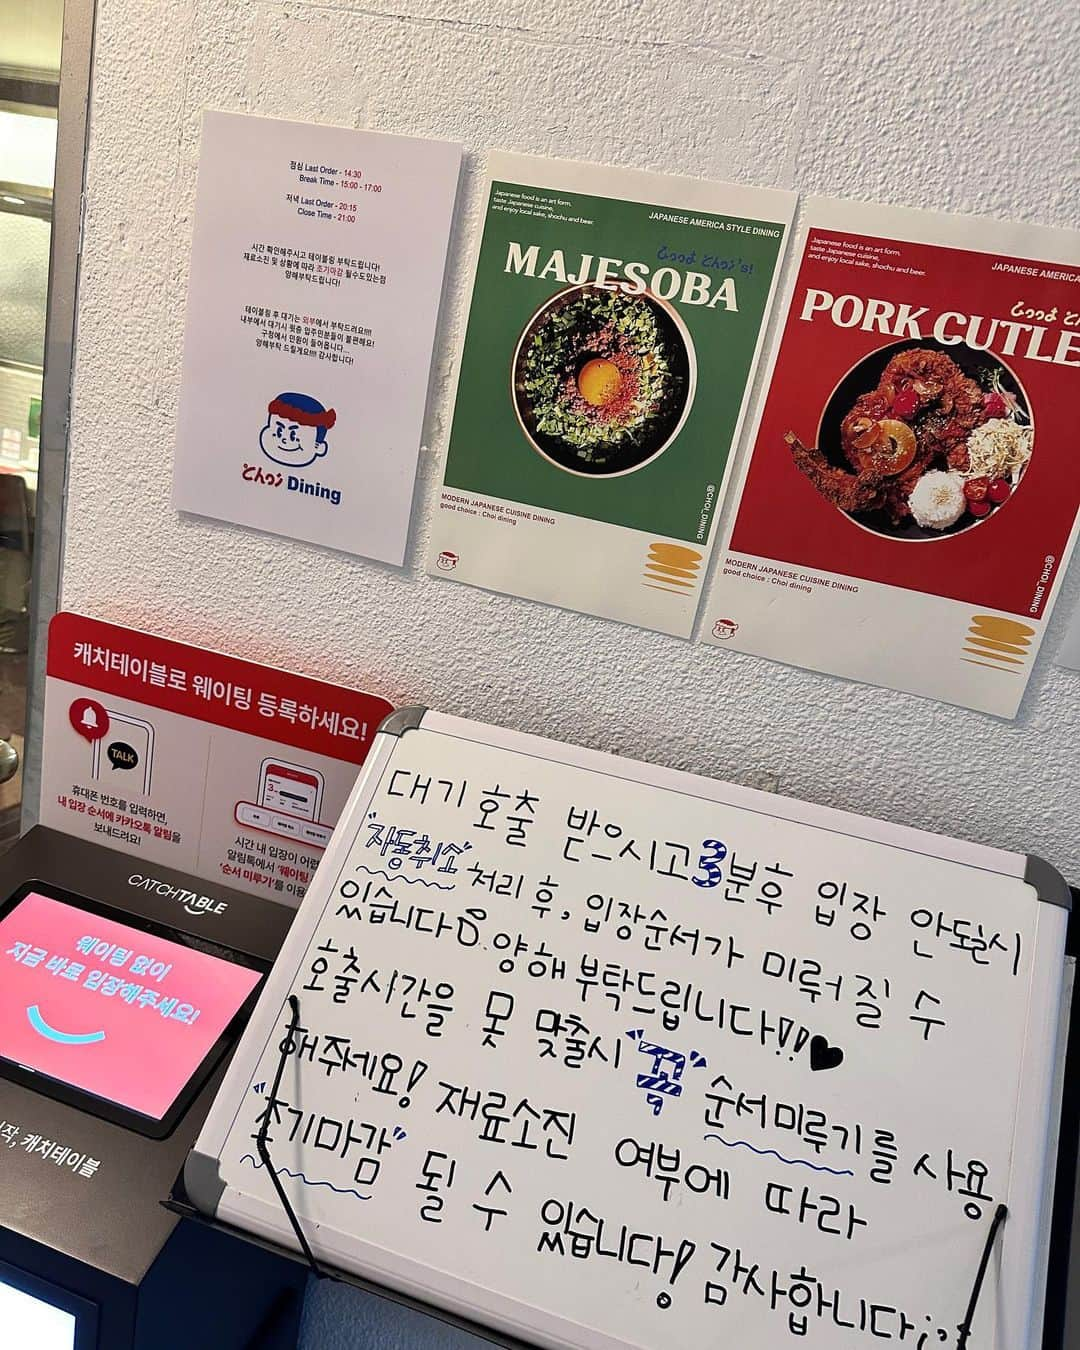 점심 Last Order - 14:30
Break Time - 15:00 - 17:00
저녁 Last Order - 20:15
Close Time - 21:00
시간 확인해주시고 테이블링 부탁드립니다!
재료소진 및 상황에 따라 조기마감 될수도있는점
양해부탁드립니다!
테이블링 후 대기는 외부에서 부탁드려요!!!!
내부에서 대기시 윗층 입주민분들이 불편해요!
구청에서 민원이 들어옵니다...
양해부탁 드릴게요!!!! 감사합니다!
とんかつ Dining
Japanese food is an art form,
taste Japanese cuisine,
and enjoy local sake, shochu and beer.
JAPANESE AMERICA STYLE DINING
MAJESOBA
MODERN JAPANESE CUISINE DINING
good choice : Choi dining
@CHOI_DINING
Japanese food is an art form,
taste Japanese cuisine,
and enjoy local sake, shochu and beer.
JAPANESE AMERICA
PORK CUTLE
MODERN JAPANESE CUISINE DINING
good choice : Choi dining
@CHOI_DINING
캐치테이블로 웨이팅 등록하세요!
TALK
휴대폰 번호를 입력하면,
내 입장 순서에 카카오톡 알림을
보내드려요!
시간 내 입장이 어렵
알림톡에서 '웨이팅
'순서 미루기'를 이용
CATCHTABLE
웨이팅 없이
지금 바로 입장해주세요!
작, 캐치테이블
대기호출 받으시고 3분후 입장 안될시
"자동취소" 처리 후, 입장순서가 미뤄질 수
있습니다. 양해 부탁드립니다!!♥
호출시간을 못 맞출시 "꼭" 순서미루기를 사용
해주세요! 재료소진 여부에 따라
"조기마감" 될 수 있습니다! 감사합니다